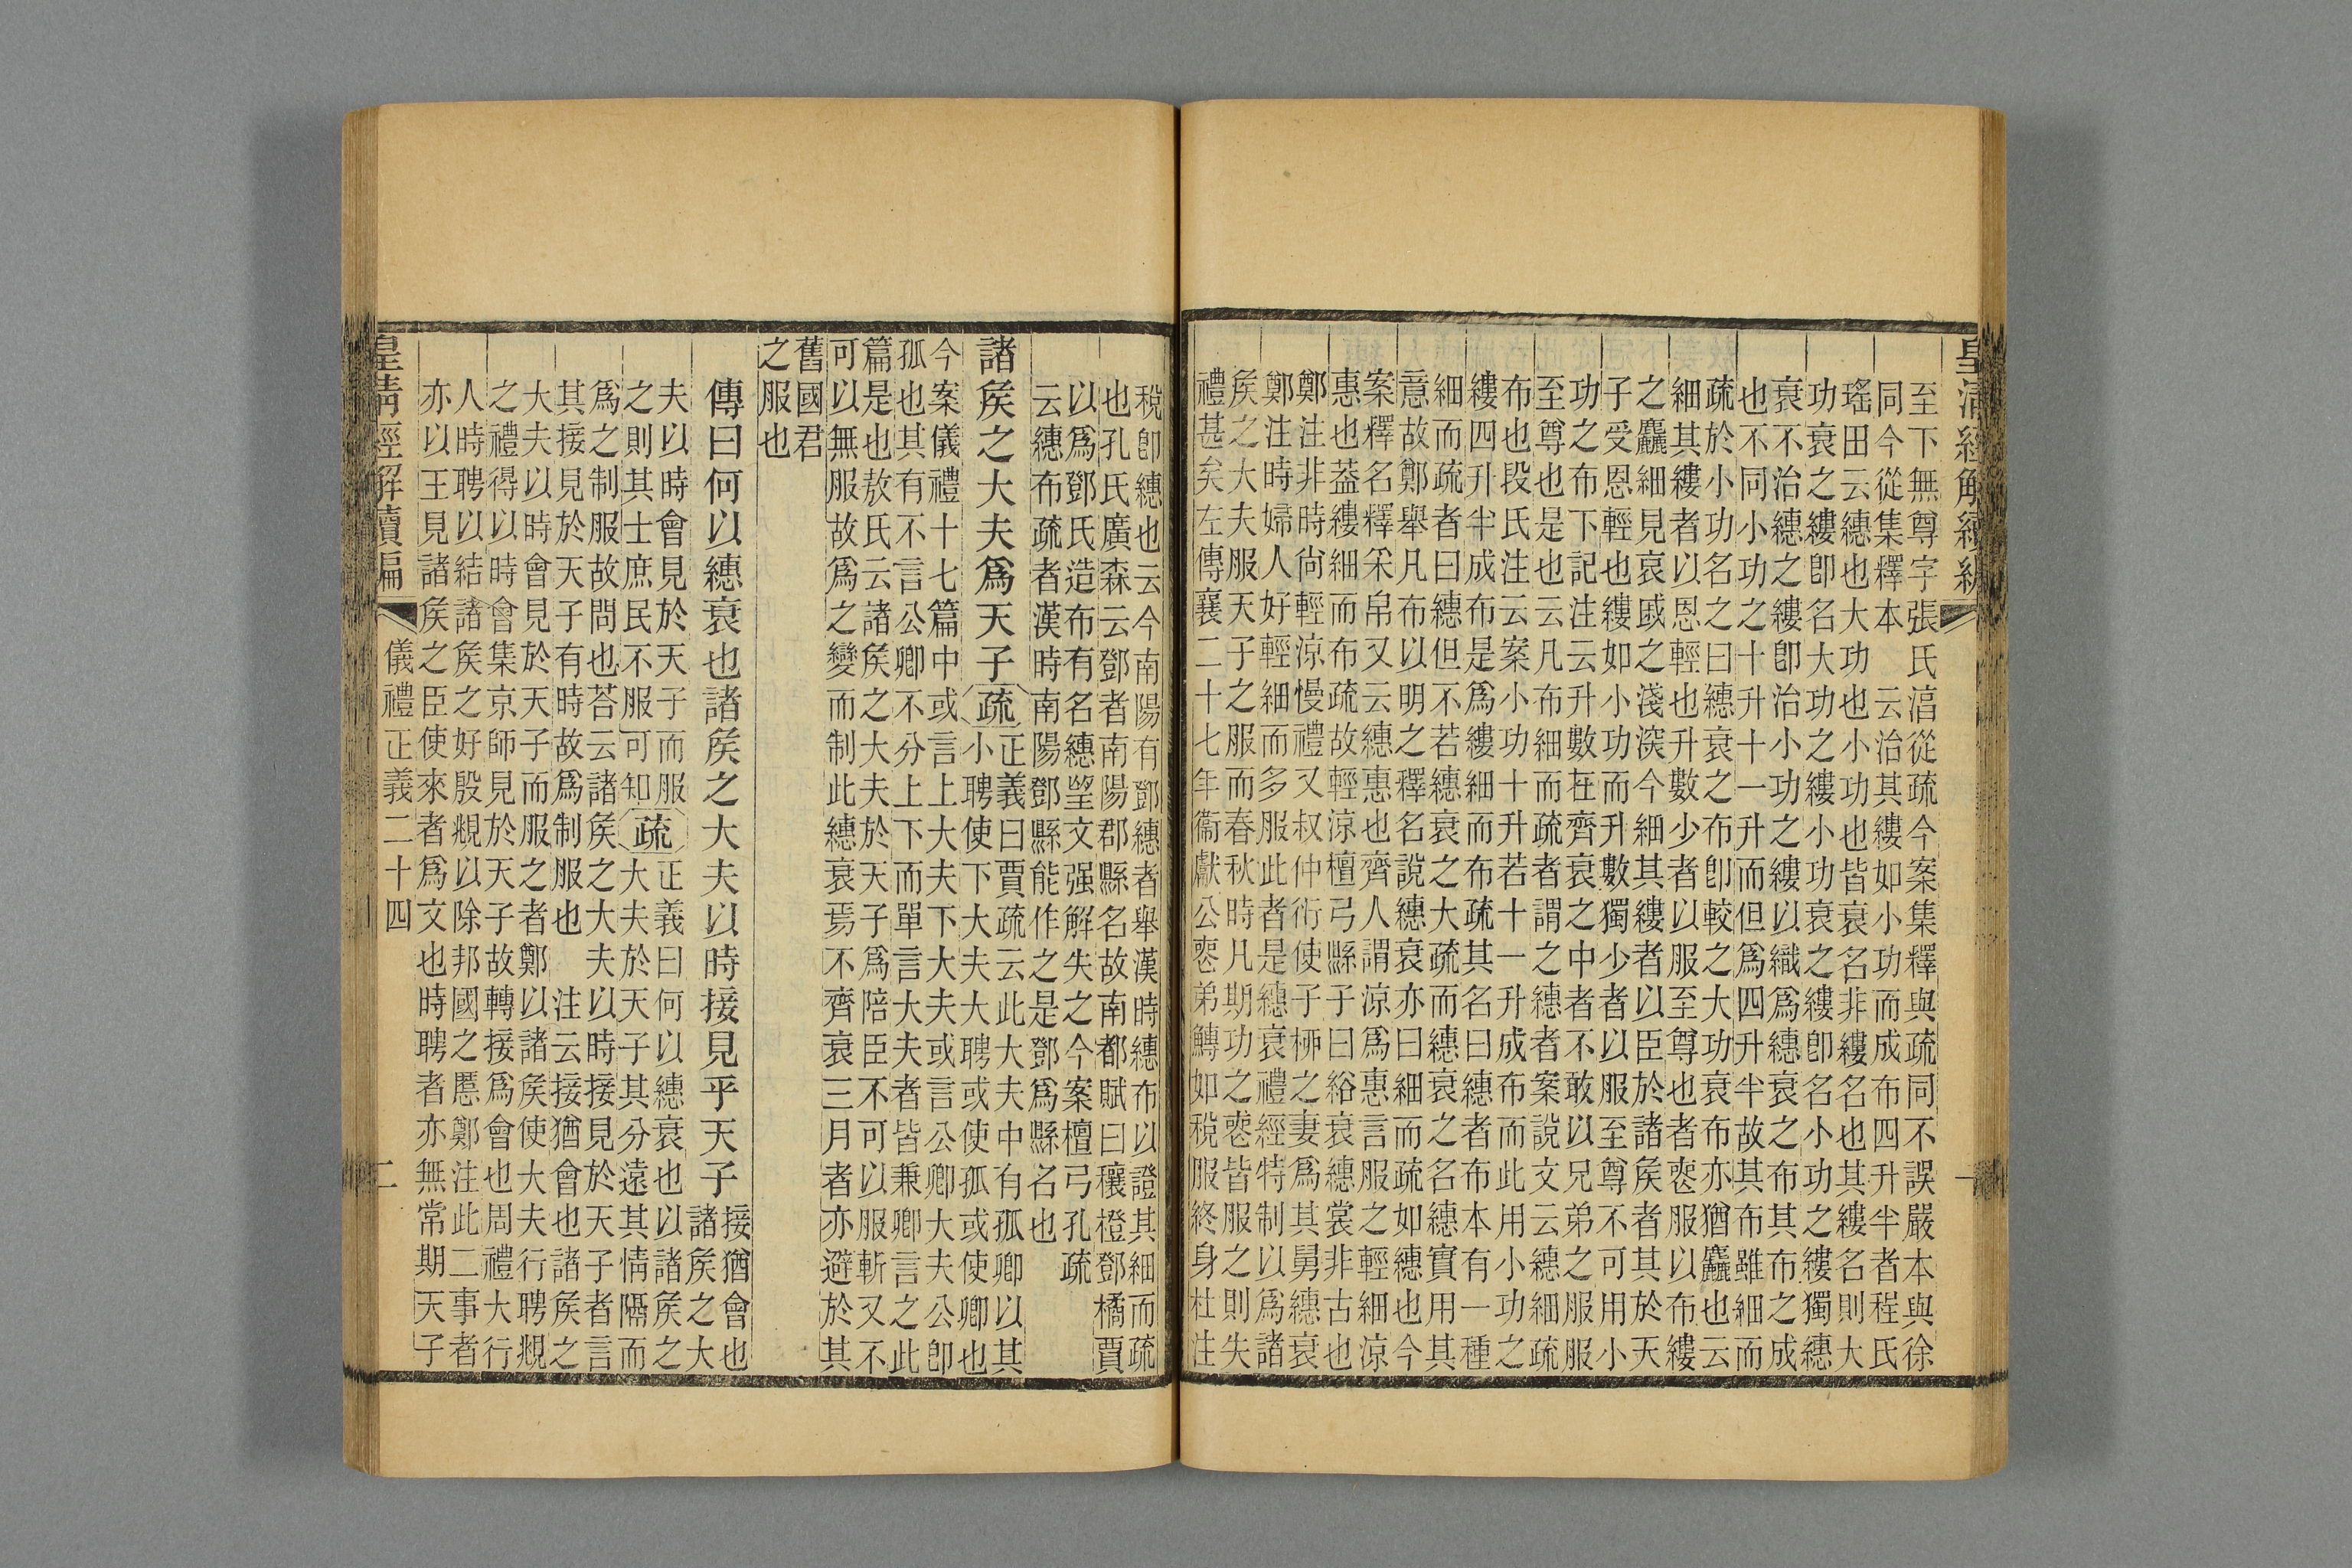 皇清經解續編 一
至下無尊字張氏㴋從疏今案集釋與疏同不誤嚴本與徐
同今從集釋本　云治其縷如小功而成布四升半者程氏
瑤田云繐也大功也小功也皆衰名非縷名也其縷名則大
功衰之縷卽名大功之縷小功衰之縷卽名小功之縷獨繐
衰不治繐之縷卽治小功之縷以織爲繐衰之布其布之成
也不同小功之十升十一升而但爲四升半故其布雖細而
疏於小功名之曰繐衰之布卽較之大功衰布亦猶麤也云
細其縷者以恩輕也升數少者以服至尊也者㤅服以布縷
之麤細見哀戚之淺深今細其縷者以臣於諸矦者其於天
子受恩輕也縷如小功而升數獨少者以服至尊不可用小
功之布下記注云升數在齊衰之中者不敢以兄弟之服服
至尊也是也云凡布細而疏者謂之繐者案說文云繐細疏
布也段氏注云案小功十升若十一升成布而此用小功之
縷四升半成布是爲縷細而布疏其名曰繐者布本有一種
細而疏者曰繐但不若繐衰之大疏而繐衰之名繐實用其
意故鄭舉凡布以明之釋名說繐衰亦曰細而疏如繐也今
案釋名釋采帛又云繐惠也齊人謂涼爲惠言服之輕細涼
惠也葢縷細而布疏故輕涼檀弓縣子曰綌衰繐裳非古也
鄭注非時尙輕涼慢禮又叔仲衍使子柳之妻爲其舅繐衰
鄭注時婦人好輕細而多服此者是繐衰禮經特制以爲諸
矦之大夫服天子之服而春秋時凡期功之㤅皆服之則失
禮甚矣左傳襄二十七年衞獻公㤅弟鱄如稅服終身杜注
稅卽繐也云今南陽有鄧繐者舉漢時繐布以證其細而疏
也孔氏廣森云鄧者南陽郡縣名故南都賦曰穰橙鄧橘賈
以爲鄧氏造布有名繐望文强解失之今案檀弓孔疏
云繐布疏者漢時南陽鄧縣能作之是鄧爲縣名也
諸矦之大夫爲天子疏
正義曰賈疏云此大夫中有孤卿以其
小聘使下大夫大聘或使孤或使卿也
今案儀禮十七篇中或言上大夫下大夫或言公卿大夫公卽
孤也其有不言公卿不分上下而單言大夫者皆兼卿言之此
篇是也敖氏云諸矦之大夫於天子爲陪臣不可以服斬又不
可以無服故爲之變而制此繐衰焉不齊衰三月者亦避於其
舊國君
之服也
傳曰何以繐衰也諸矦之大夫以時接見乎天子
接猶會也
諸矦之大
夫以時會見於天子而服
之則其士庶民不服可知
疏
正義曰何以繐衰也以諸矦之
大夫於天子其分遠其情隔而
爲之制服故問也荅云諸矦之大夫以時接見於天子者言
其接見於天子有時故爲制服也　注云接猶會也諸矦之
大夫以時會見於天子而服之者鄭以諸矦使大夫行聘覜
之禮得以時會集京師見於天子故轉接爲會也周禮大行
人時聘以結諸矦之好殷覜以除邦國之慝鄭注此二事者
亦以王見諸矦之臣使來者爲文也時聘者亦無常期天子
皇清經解續編 儀禮正義二十四 二